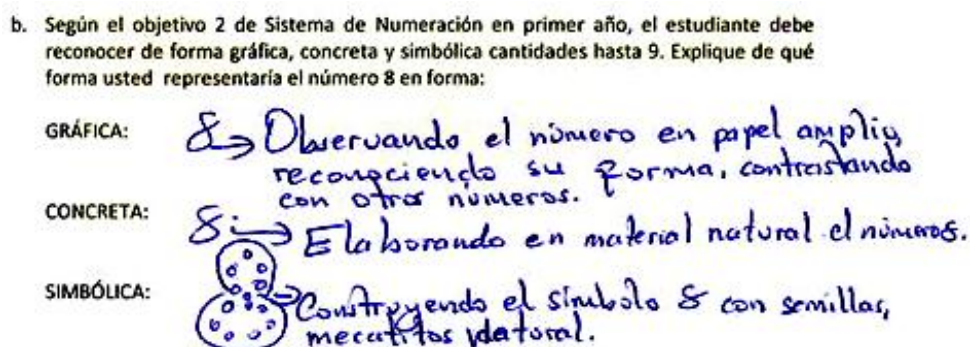 b. Según el objetivo 2 de Sistema de Numeración en primer año, el estudiante debe
reconocer de forma gráfica, concreta y simbólica cantidades hasta 9. Explique de qué
forma usted representaría el número 8 en forma:
GRÁFICA: 8→ Observando el número en papel amplio,
reconociendo su forma, contrastando
con otros números.
CONCRETA: 8:→ Elaborando en material natural el números.
SIMBÓLICA: →Construyendo el símbolo 8 con semillas,